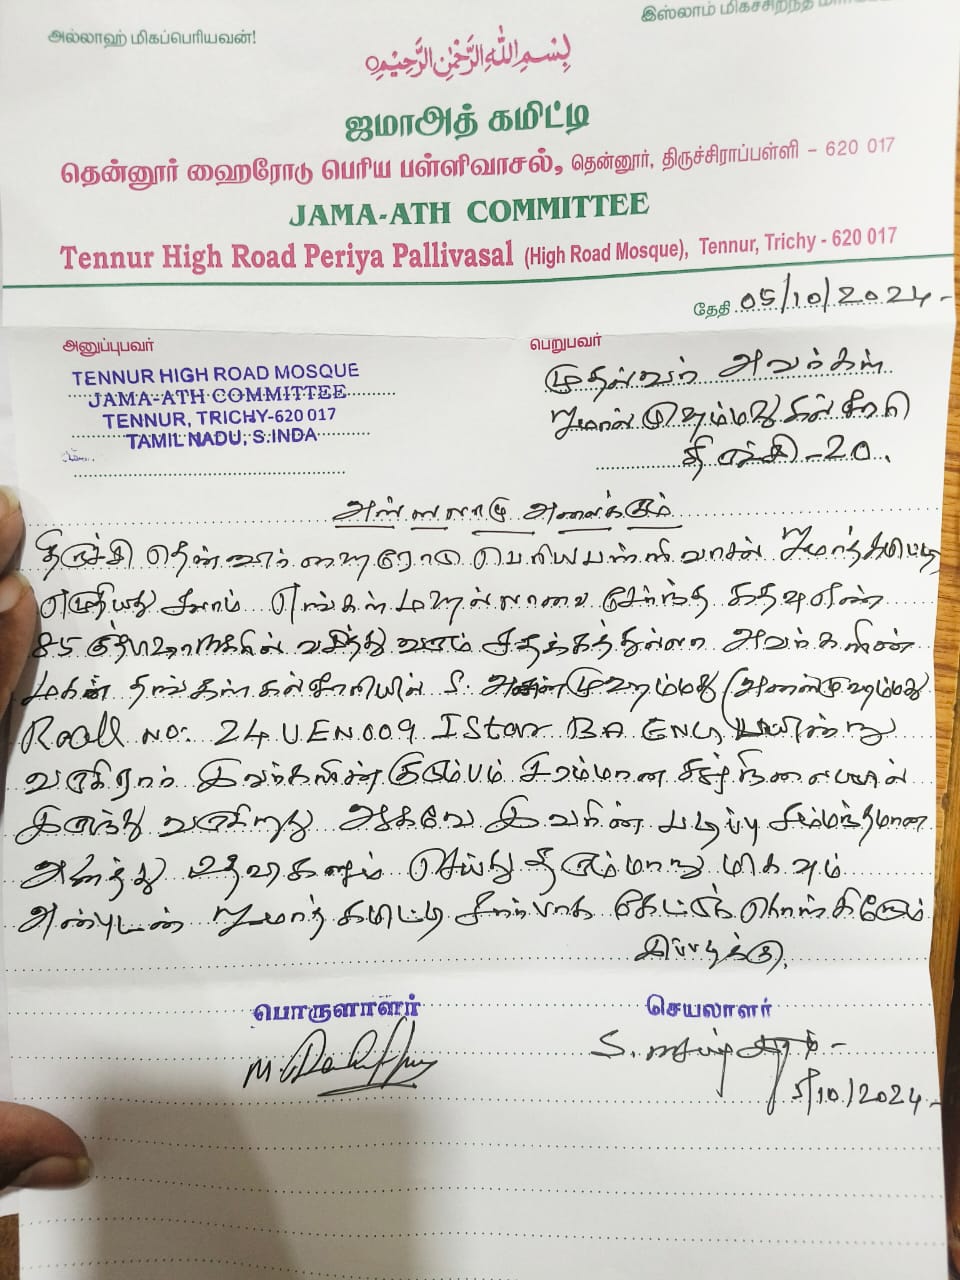 அல்லாஹ் மிகப்பெரியவன்!
இஸ்லாம் மிகச்சிறந்த
بِسْمِ اللهِ الرَّحْمٰنِ الرَّحِيْمِ
ஜமாஅத் கமிட்டி
தென்னூர் ஹைரோடு பெரிய பள்ளிவாசல், தென்னூர், திருச்சிராப்பள்ளி - 620 017
JAMA-ATH COMMITTEE
Tennur High Road Periya Pallivasal (High Road Mosque), Tennur, Trichy - 620 017
தேதி 05/10/2024-
அனுப்புபவர்
பெறுபவர்
TENNUR HIGH ROAD MOSQUE
JAMA-ATH COMMITTEE
TENNUR, TRICHY-620 017
TAMIL NADU, S.INDA
முதல்வர் அவர்கள்
ஜமால் முஹம்மது கல்லூரி
திருச்சி -20.
அஸ்ஸலாமு அலைக்கும்
திருச்சி தென்னூர் ஹைரோடு பெரியபள்ளிவாசல் ஜமாத் கமிட்டி
எழுதியது சலாம் எங்கள் மஹல்லாவை சேர்ந்த கதவுஎண்
85 வசித்து வரும் அவர்களின்
மகன் தங்கள் கல்லூரியில் S.
Rooll NO: 24 UEN 009 I Star BA ENG பயின்று
வருகிறார் இவர்களின் குடும்பம் சிரமமான
இருந்து வருகிறது ஆகவே இவரின் படிப்பு சம்மந்தமான
அனைத்து உதவிகளும் செய்து தருமாறு மிகவும்
அன்புடன் ஜமாத் கமிட்டி சார்பாக கேட்டுக் கொள்கிறோம்
இப்படிக்கு,
பொருளாளர்
செயலாளர்
5/10/2024-